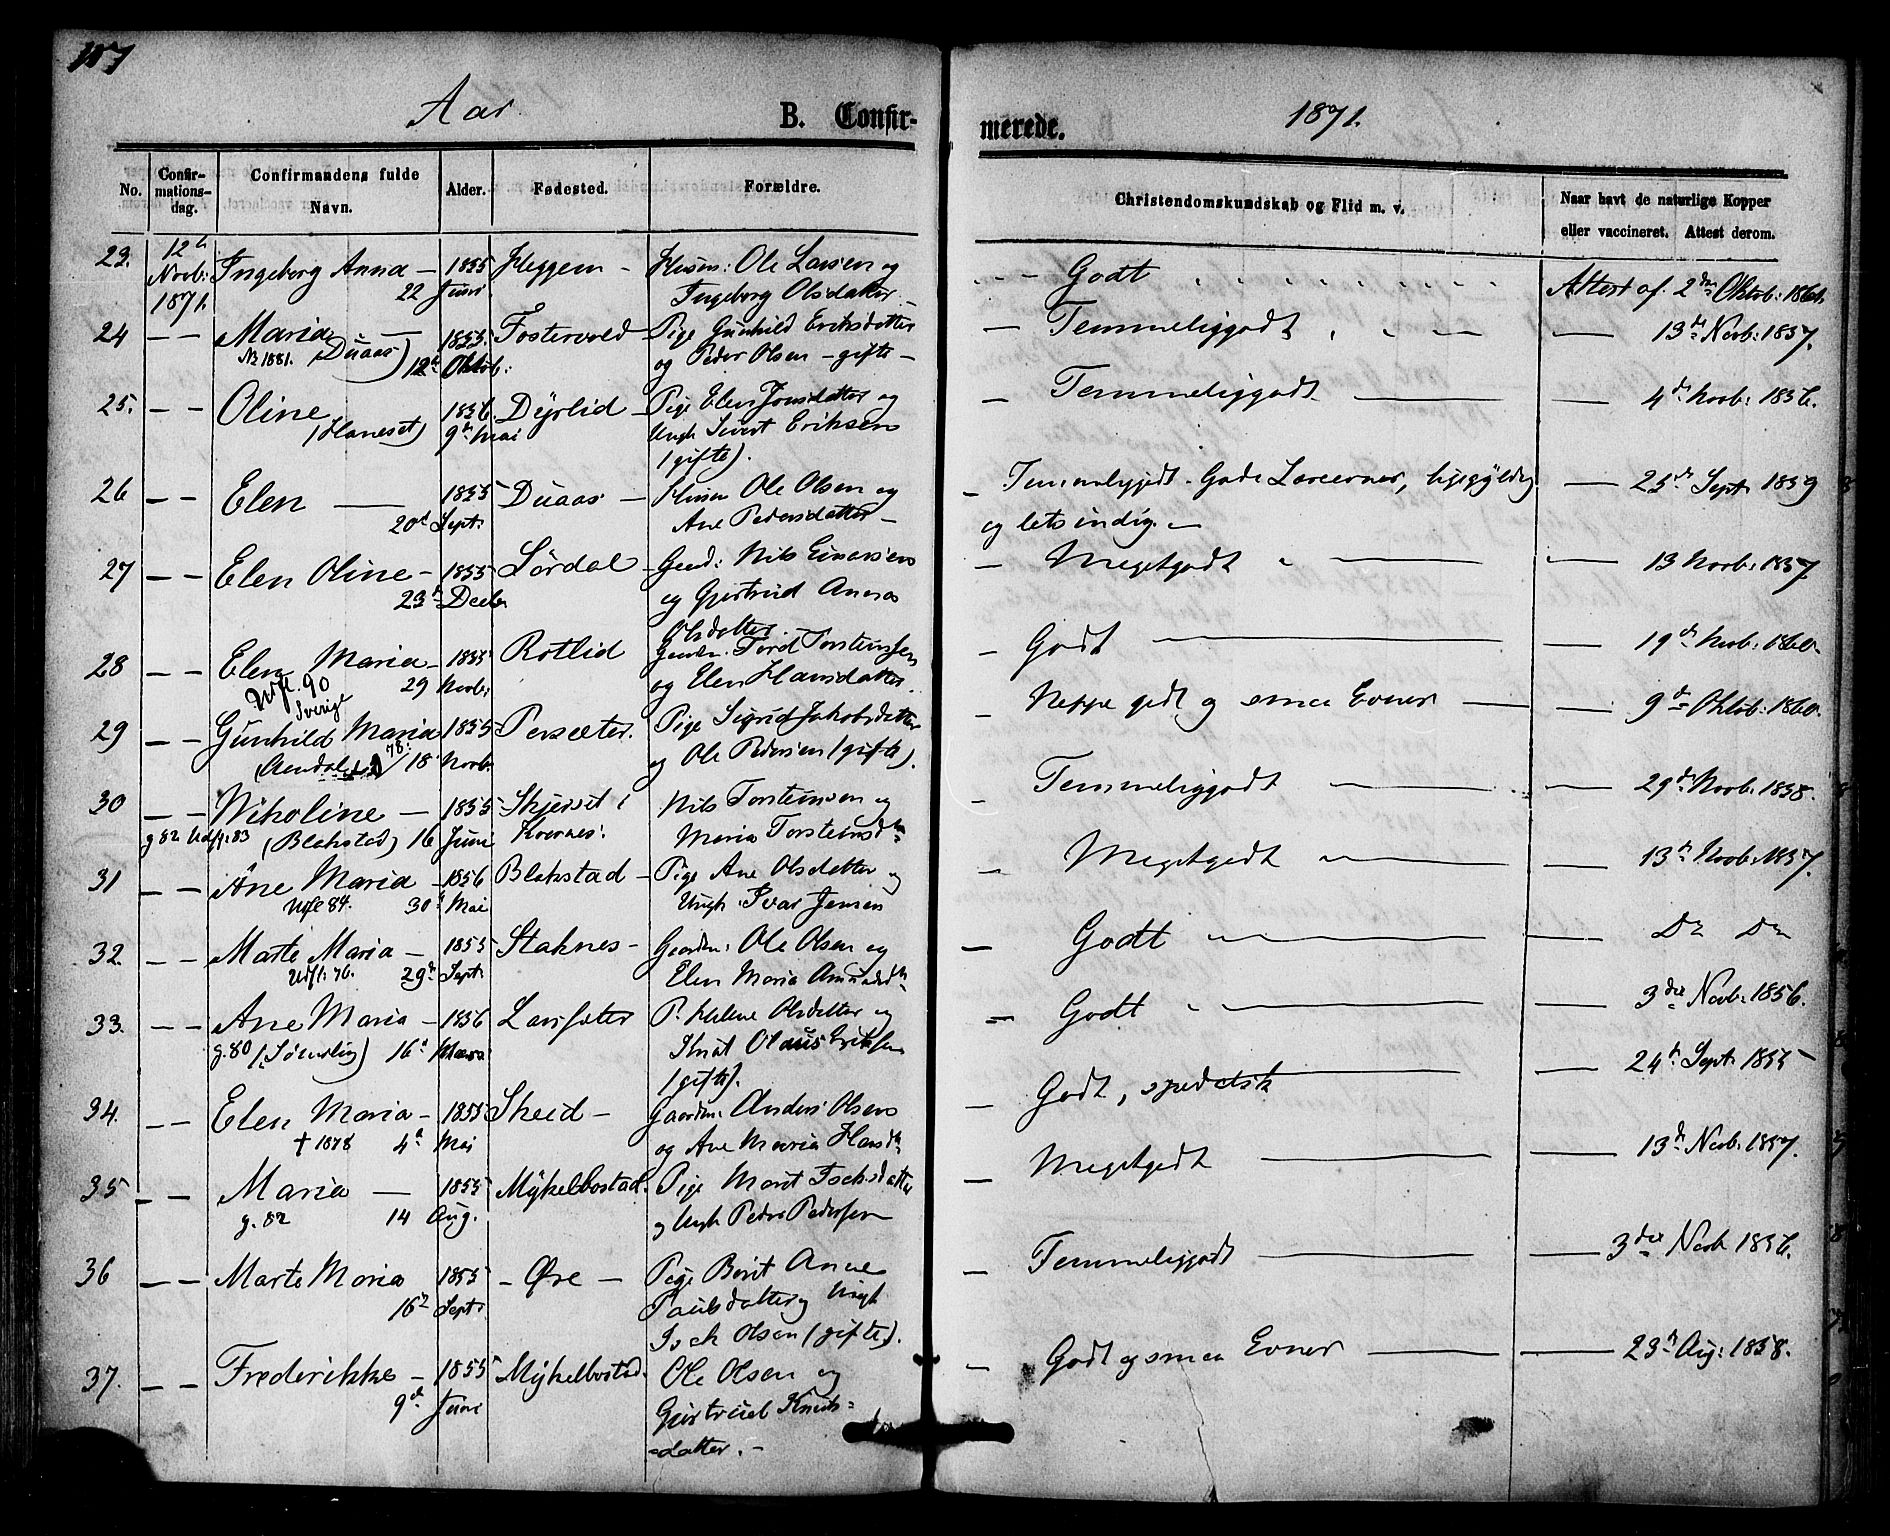 117
Aar B. Confir-
merede. 1871.
No. Confir-mations-dag. Confirmandens fulde Navn. Alder. Fødested. Forældre.
Christendomskundskab og Flid m. v. Naar havt de naturlige Kopper eller vaccineret. Attest derom.
23. 12te Novb: 1871. Ingeborg Anna — 1855 Heggem — Husm: Ole Larsen og
22 Juni Ingeborg Olsdatter —
— Godt Attest af 2den Oktob: 1860.
24 — — Maria — 1855 Fostervold — Pige Gunhild Eriksdatter
1881. (Duaas) 12te Oktob: og Peder Olsen — gifte —
— Temmeliggodt — 13de Novb: 1857.
25. — — Oline 1856 Dyrlid — Pige Elen Jonsdatter og
(Haneset) 9de Mai Ungk Sivert Eriksen
(gifte).
— Temmeliggodt — 4de Novb: 1856.
26 — — Elen — 1855 Duaas — Husm Ole Olsen og
20de Sept: Ane Pedersdatter —
— Temmeliggodt. Gode Læreevner, ligegyldig — 25de Sept: 1859
og letsindig. —
27 — — Elen Oline — 1855 Lørdal — Gaard: Nils Einersen
23de Decbr og Gjertrud Anna
Olsdatter.
— Megetgodt — 13 Novb: 1857.
28 — — Elen Maria — 1855 Rotlid Gaardm: Tord Torstensen
Udfl. 90 29 Novb: og Elen Hansdatter.
Sverige
— Godt — 19de Novb: 1860.
29 — — Gunhild Maria 1855 Persæter. Pige Sigrid Jakobsdatter
78. 18 Novb. og Ole Pedersen (gifte).
— Neppe godt og smaa Evner — 9de Oktob: 1860.
30 — — Nikoline — 1855 Skjerset i Nils Torstensen og
g 82 Udfl: 83 (Blakstad) 16 Juni Kvernes: Maria Torsteinsdtr
— Temmeliggodt — 29de Novb: 1858.
31 — — Ane Maria — 1856 Blakstad — Pige Ane Olsdatter og
Udfl 84. 30 Mai Ungk. Ivar Jensen
— Megetgodt — 13de Novb: 1857.
32. — — Marte Maria — 1855 Staknes — Gaardm: Ole Olsen og
Udfl: 76. 29de Sept: Elen Maria Amundsdtr
— Godt — Do Do
33. — — Ane Maria — 1856 Larssæter P. Helene Olsdatter og
g. 80 16de Marts Knut Olaus Eriksen
(gifte).
— Godt — 3die Novb: 1856.
34. — — Elen Maria — 1855 Skeid — Gaardm: Anders Olsen
† 1878 4de Mai og Ane Maria Hansdtr
— Godt, spedalsk — 24de Sept: 1855
35 — — Maria — 1855 Mykelbostad. Pige Marit Isaksdatter
g. 82 14 Aug. og Ungk Peder Pedersen
— Megetgodt — 13de Novb: 1857.
36 — — Marte Maria 1855 — Øre — Pige Berit Anne
16de Sept: Paulsdatter og Ungk
Isak Olsen (gifte).
— Temmeliggodt — 3die Novb 1856.
37. — — Frederikke — 1855 Mykelbostad. Ole Olsen og
9de Juni Gjertrued Knuts-
datter. —
— Godt og smaa Evner — 23de Aug: 1858.